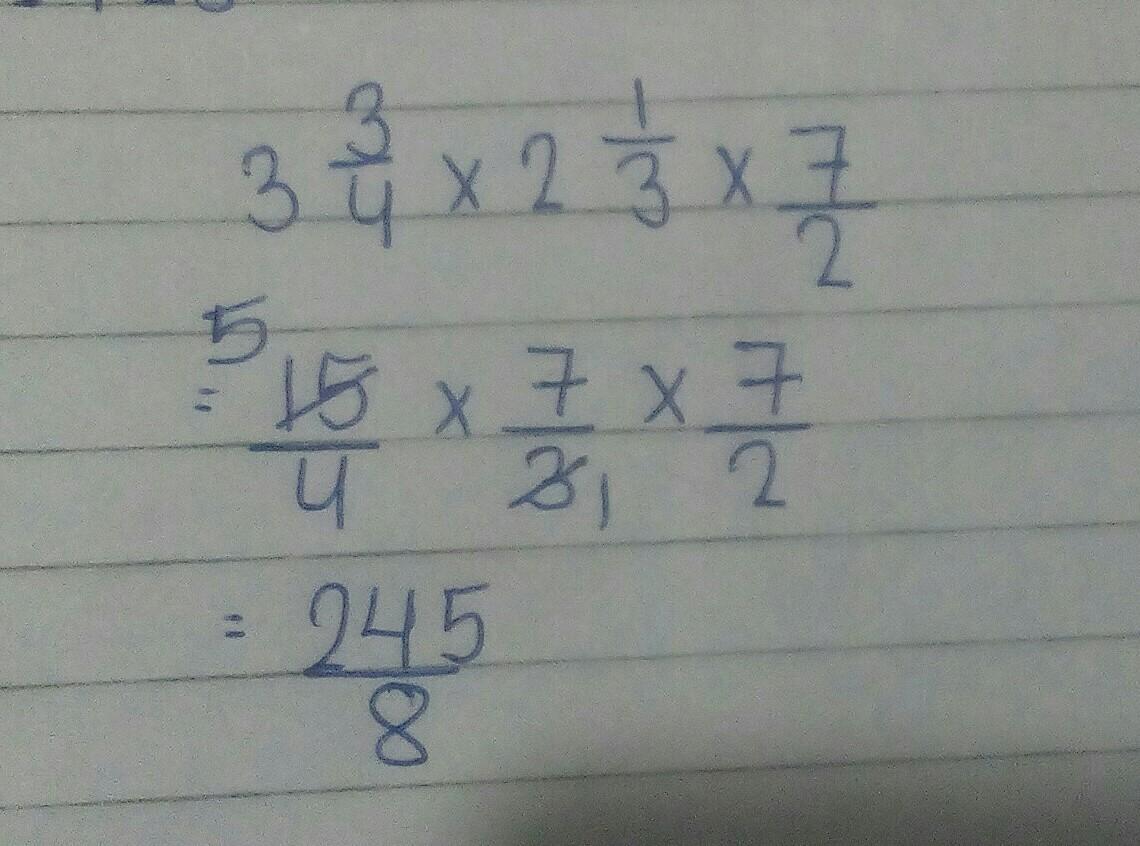 3 3/4 x 2 1/3 x 7/2
= 5 15/4 x 7/3 1 x 7/2
= 245/8